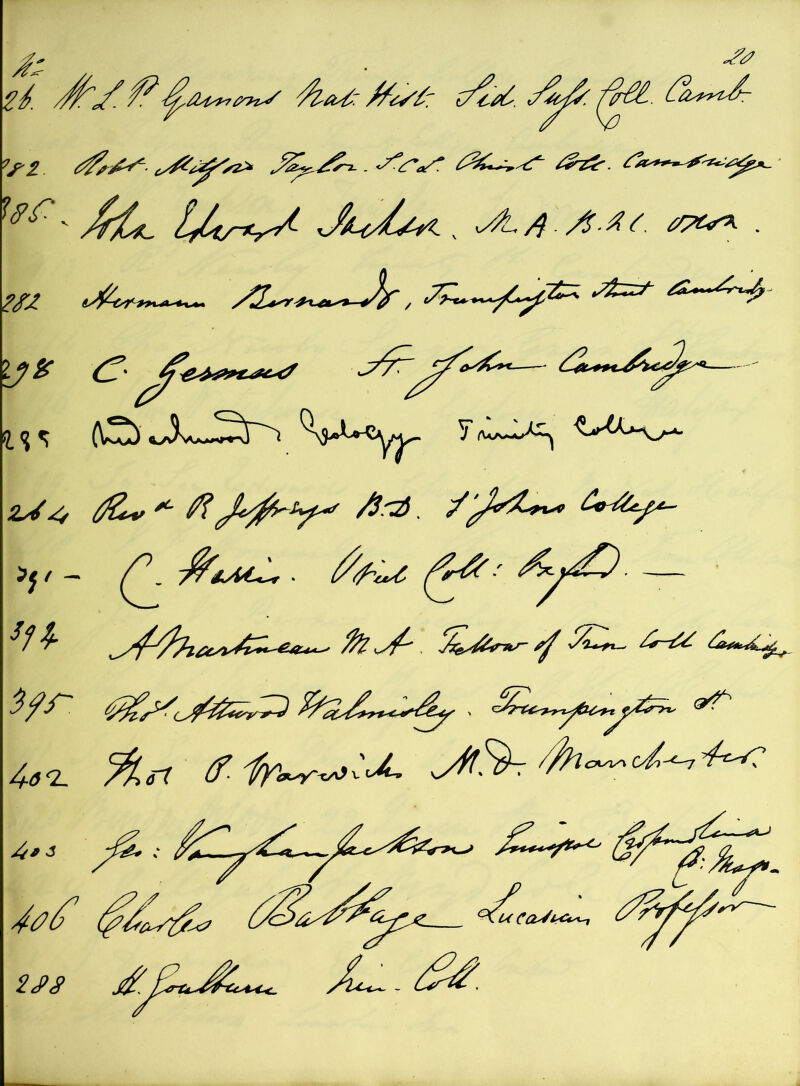 20
No
26. W. L. P. Garnons Nat. Hist. Sid. Suss. Coll. Camb.
282. Robt. Mitford Taylor. S.C.L. Christ Coll. Cambridge
385. John Edward Jackson, M.A. B.N.C. oxon.
282 Hermann Bernard, Trumpington Street Cambridge
298 C. St. John Cambridge
Geology Trinity College
264 Revd R Jeffreys B.D. St Johns College
391 - C. Oriel Coll: Oxford. —
394 A Martineau M A. Fellow of Trin Coll Cambridge
395 Thos. Attwood Walmisley. Trumpington St
402 Thos P. Warwick M.D. Manchester.
403 Geo: Vaughan Jackson Co: Mayo-
406 Charles Babbage Lucasian Professor
288 H. Goulburn Trin. Coll.